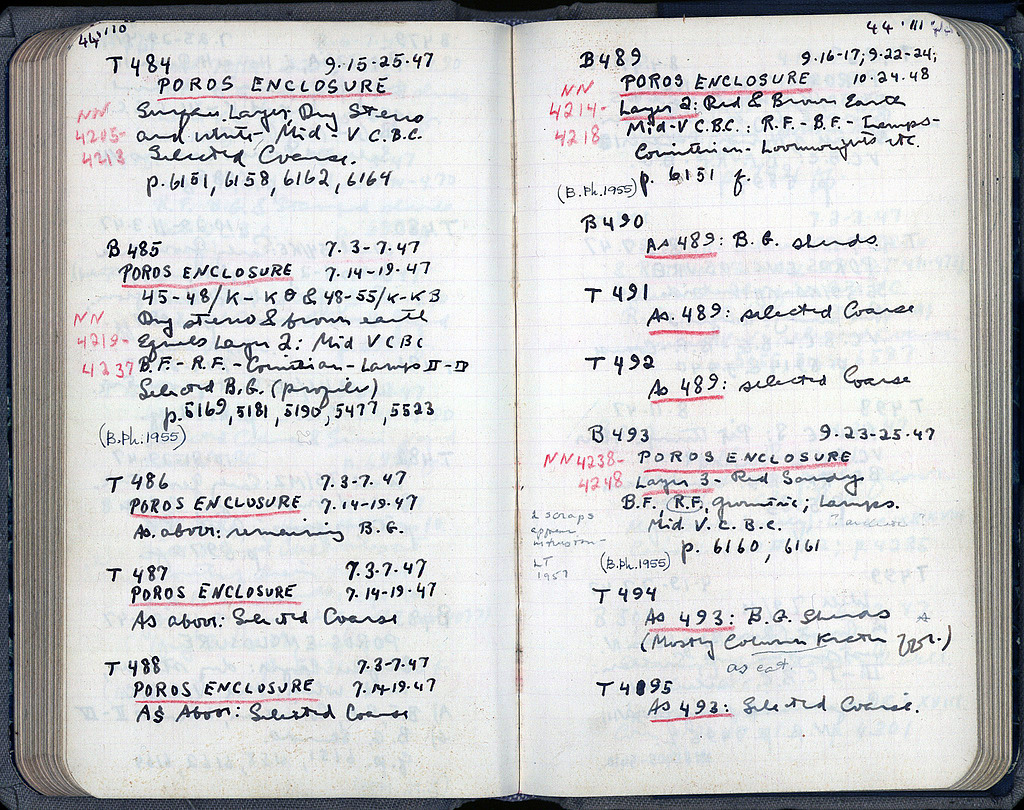 44'110
T 484 9.15-25.47
POROS ENCLOSURE
NN Surface Layer Dry Stereo
4205- and white, Mid-V C.B.C.
4213 Selected Coarse.
p.6151, 6158, 6162, 6164
B 485 7.3-7.47
POROS ENCLOSURE 7.14-19.47
45-48/K-KΘ & 48-55/K-KB
NN Dry stereo & brown earth
4219- Equals Layer 2: Mid V C BC
4237 B.F.-R.F.-Corinthian-Lamps II-IV
Selected B.G. (profiles)
p.5169, 5181, 5190, 5477, 5523
(B.Ph.1955)
T 486 7.3-7.47
POROS ENCLOSURE 7.14-19.47
As above: remaining B.G.
T 487 7.3-7.47
POROS ENCLOSURE 7.14-19.47
As above: Selected Coarse
T 488 7.3-7.47
POROS ENCLOSURE 7.14-19.47
As Above: Selected Coarse
44'111
B 489 9.16-17; 9.22-24;
NN POROS ENCLOSURE 10.24.48
4214- Layer 2: Red & Brown Earth
4218 Mid-V C.B.C.: R.F.-B.F.-Lamps-
Corinthian-Loomweights etc.
(B.Ph.1955) p. 6151 f.
B 490
As 489: B.G. sherds.
T 491
As 489: selected Coarse
T 492
As 489: selected Coarse
B 493 9.23-25.47
NN 4238- POROS ENCLOSURE
4248 Layer 3- Red Sandy
B.F. (R.F.) geometric; Lamps.
2 scraps
appear
intrusion-
LT
1957
Mid V. C. B.C.
(B.Ph.1955) p. 6160, 6161
T 494
As 493: B.G. Sherds
(Mostly Column Krater
as cat.
T 495
As 493: Selected Coarse.